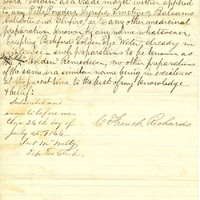 word "Indian" as a trade mark, either applied
to any Pills, Powders, Syrups, Emetics, Balsams
Antidote and Elixirs, or to any other medicinal
preparation known by any name whatsoever,
excepting Pechford's Golden Eye Water, already in
existence; said preparations to be known as
"Indian" Remedies; no other preparations
of the same or a similar name being in existence
at the present time to the best of my knowledge
& belief;
Subscribed and
sworn to before me
this 26th day of
July 1864
C. French Richards
Clerk